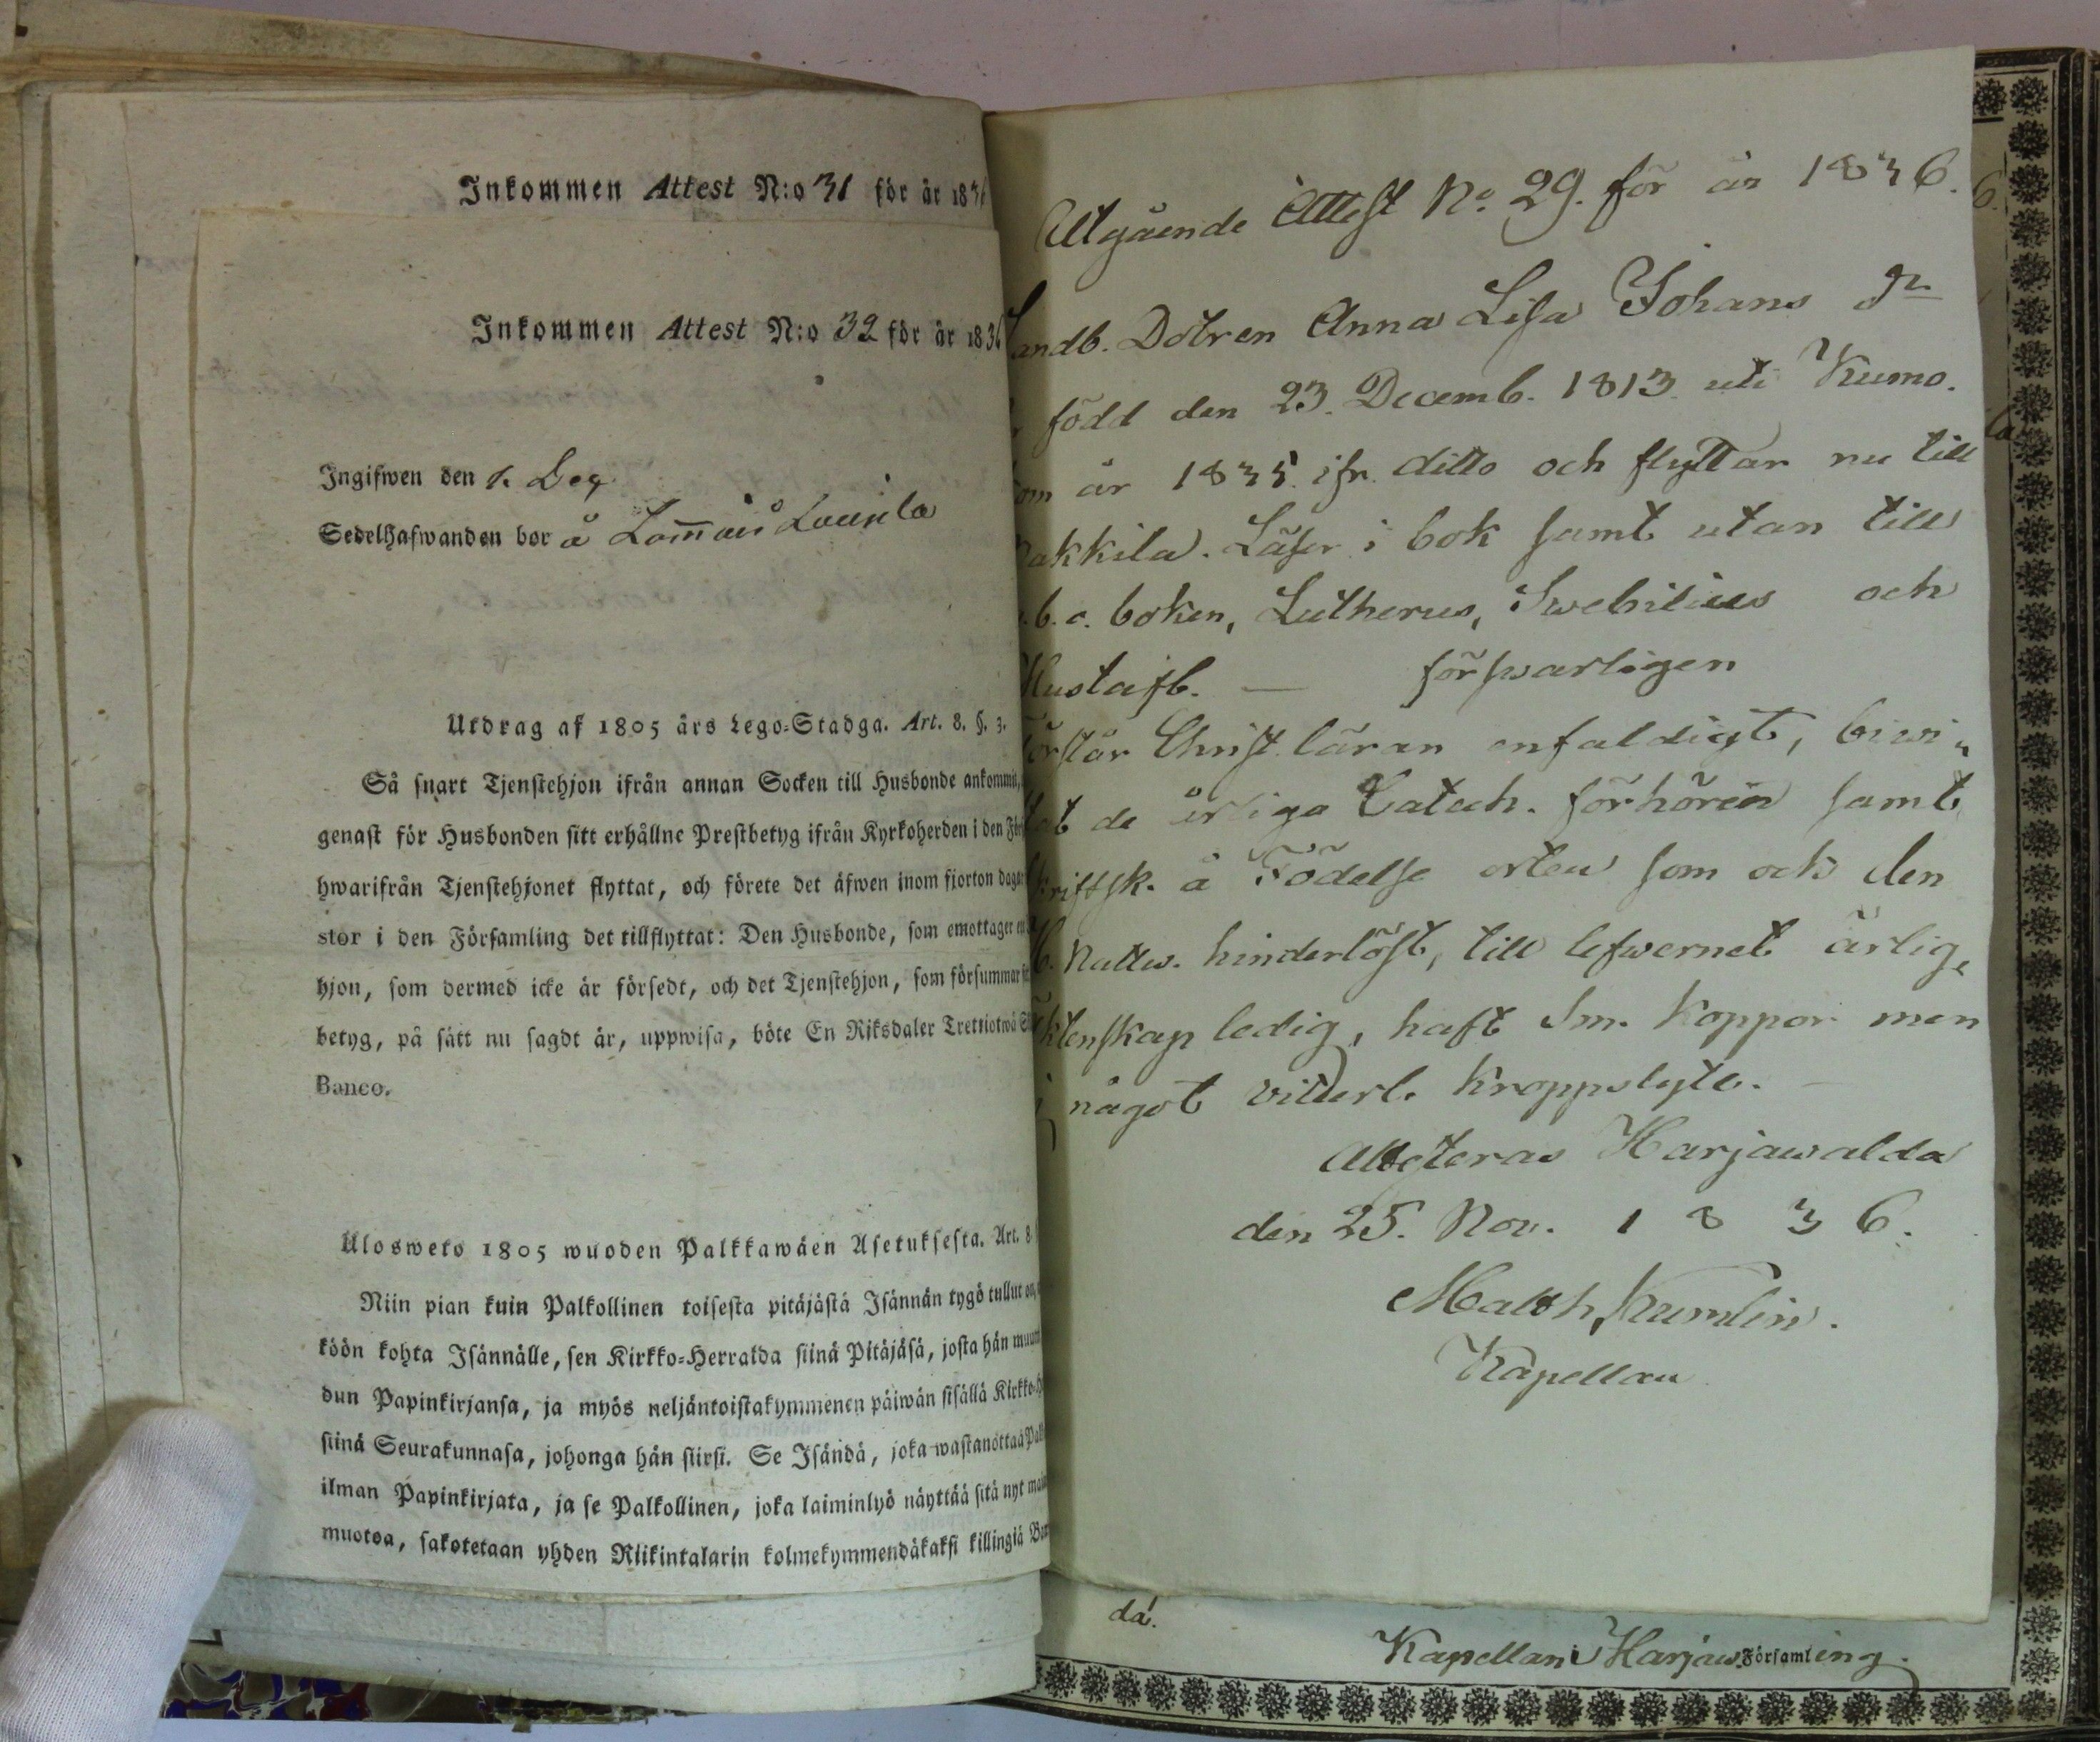 Inkommen Attest N:o 31 för år 1836
Inkommen Attest N:o 32 för år 1836
Ingifwen den 1. Dec
Sedelhafwanden bor å
Utdrag af 1805 års Lego-Stadga. Art. 8. §. 3.
Så snart Tjenstehjon ifrån annan Socken till Husbonde ankommit,
genast för Husbonden sitt erhållne Prestbetyg ifrån Kyrkoherden i den
hwarifrån Tjenstehjonet flyttat, och förete det äfwen inom fjorton dagar
stor i den Församling det tillflyttat: Den Husbonde, som emottager
hjon, som dermed icke är försedt, och det Tjenstehjon, som försummar
betyg, på sätt nu sagdt är, uppwisa, böte En Riksdaler Trettiotwå
Banco.
Ulosweto 1805 wuoden Palkkawäen Asetuksesta. Art. 8
Niin pian kuin Palkollinen toisesta pitäjästä Isännän tygö tullut on,
köön kohta Isännälle, sen Kirkko-Herralda siinä Pitäjäsä, josta hän
dun Papinkirjansa, ja myös neljäntoistakymmenen päiwän sisällä
siinä Seurakunnasa, johonga hän siirsi. Se Isändä, joka wastanottaa
ilman Papinkirjata, ja se Palkollinen, joka laiminlyö näyttää sitä nyt
muotoa, sakotetaan yhden Riikintalarin kolmekymmendäkaksi killingiä
Utgående Attest No. 29. för år 1836.
andb. Dotren Anna Lisa Johans dr
född den 23. Decemb. 1813 uti Kumo.
om år 1835 ifr. ditto och flyttar nu till
akkila. Läser i bok samt utan till
b. c. boken, Lutherus, Swebilius och
Hustafl. — försvarligen
örstår Christ. läran enfaldigt, biwi-
at de årliga Catech. förhören samt
kriftsk. å Födelse orten som ock den
H. Nattw. hinderlöst, till lefwernet ärlig,
ktenskap ledig, haft Sm. koppor men
j något vitterl. kroppslyte. —
Attesteras Harjawalda
den 25. Nov. 1836.
Matth Kumlin.
Kapellan
da.
Kapellan i Harjaw Församling.